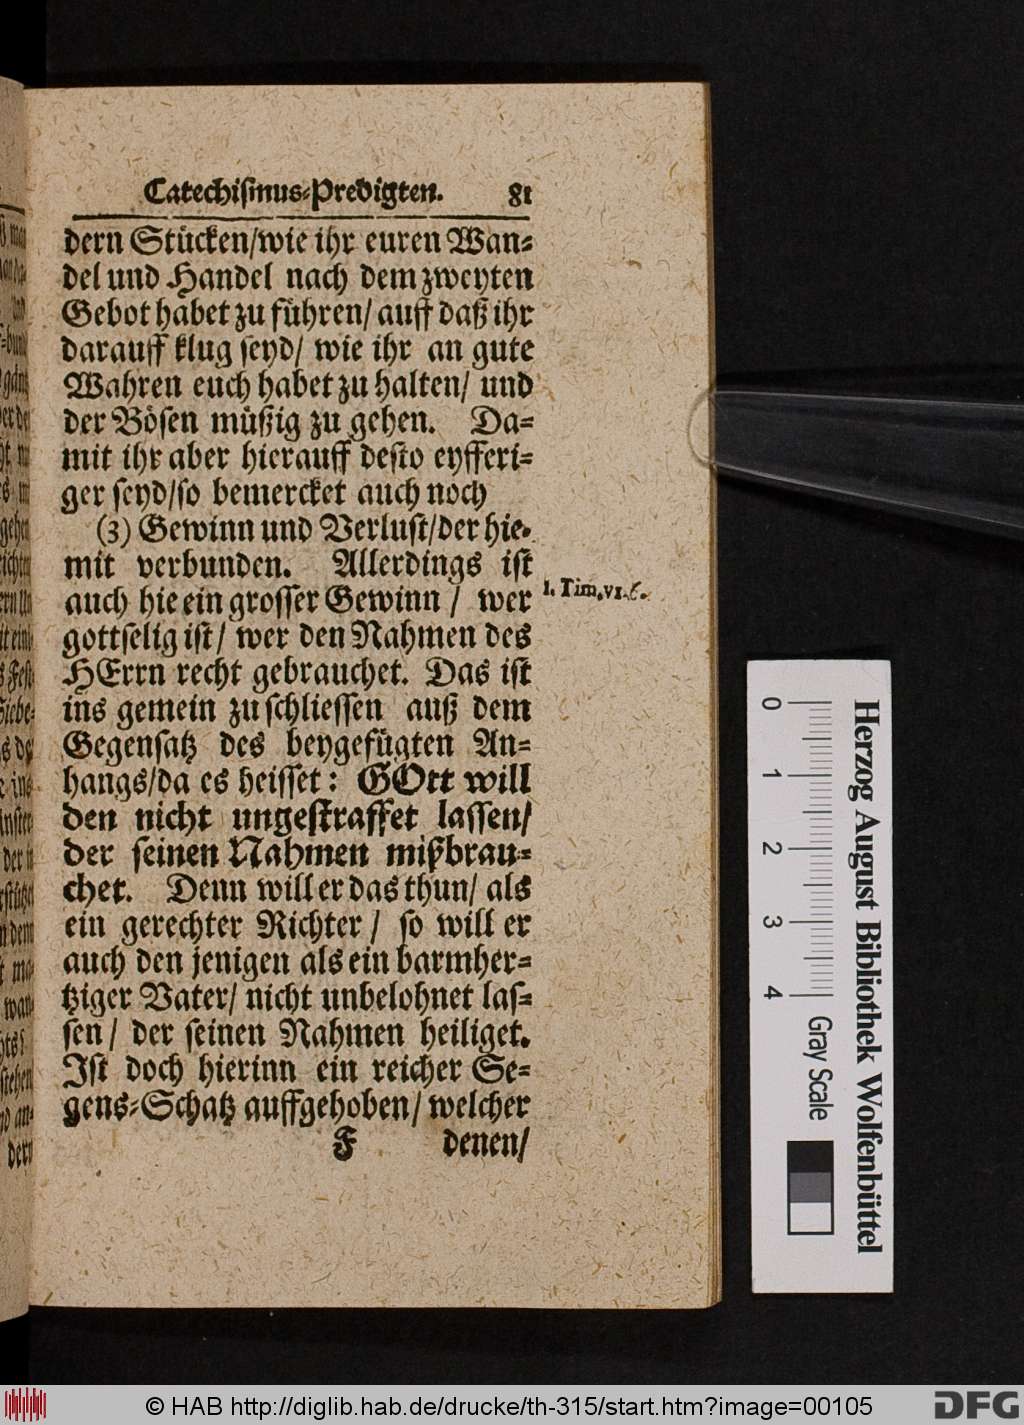 Catechismus-Predigten. 81
dern Stücken/wie ihr euren Wan-
del und Handel nach dem zweyten
Gebot habet zu führen/ auff daß ihr
darauff klug seyd/ wie ihr an gute
Wahren euch habet zu halten/ und
der Bösen müßig zu gehen. Da-
mit ihr aber hierauff desto eyfferi-
ger seyd/so bemercket auch noch
(3) Gewinn und Verlust/der hie-
mit verbunden. Allerdings ist
auch hie ein grosser Gewinn / wer
1. Tim. VI. 6.
gottselig ist/ wer den Nahmen des
HErrn recht gebrauchet. Das ist
ins gemein zu schliessen auß dem
Gegensatz des beygefügten An-
hangs/da es heisset: GOtt will
den nicht ungestraffet lassen/
der seinen Nahmen mißbrau-
chet. Denn will er das thun/ als
ein gerechter Richter / so will er
auch den jenigen als ein barmher-
tziger Vater/ nicht unbelohnet las-
sen/ der seinen Nahmen heiliget.
Ist doch hierinn ein reicher Se-
gens-Schatz auffgehoben/ welcher
F denen/
dern
0 1 2 3 4
Gray Scale
Herzog August Bibliothek Wolfenbüttel
© HAB http://diglib.hab.de/drucke/th-315/start.htm?image=00105
DFG